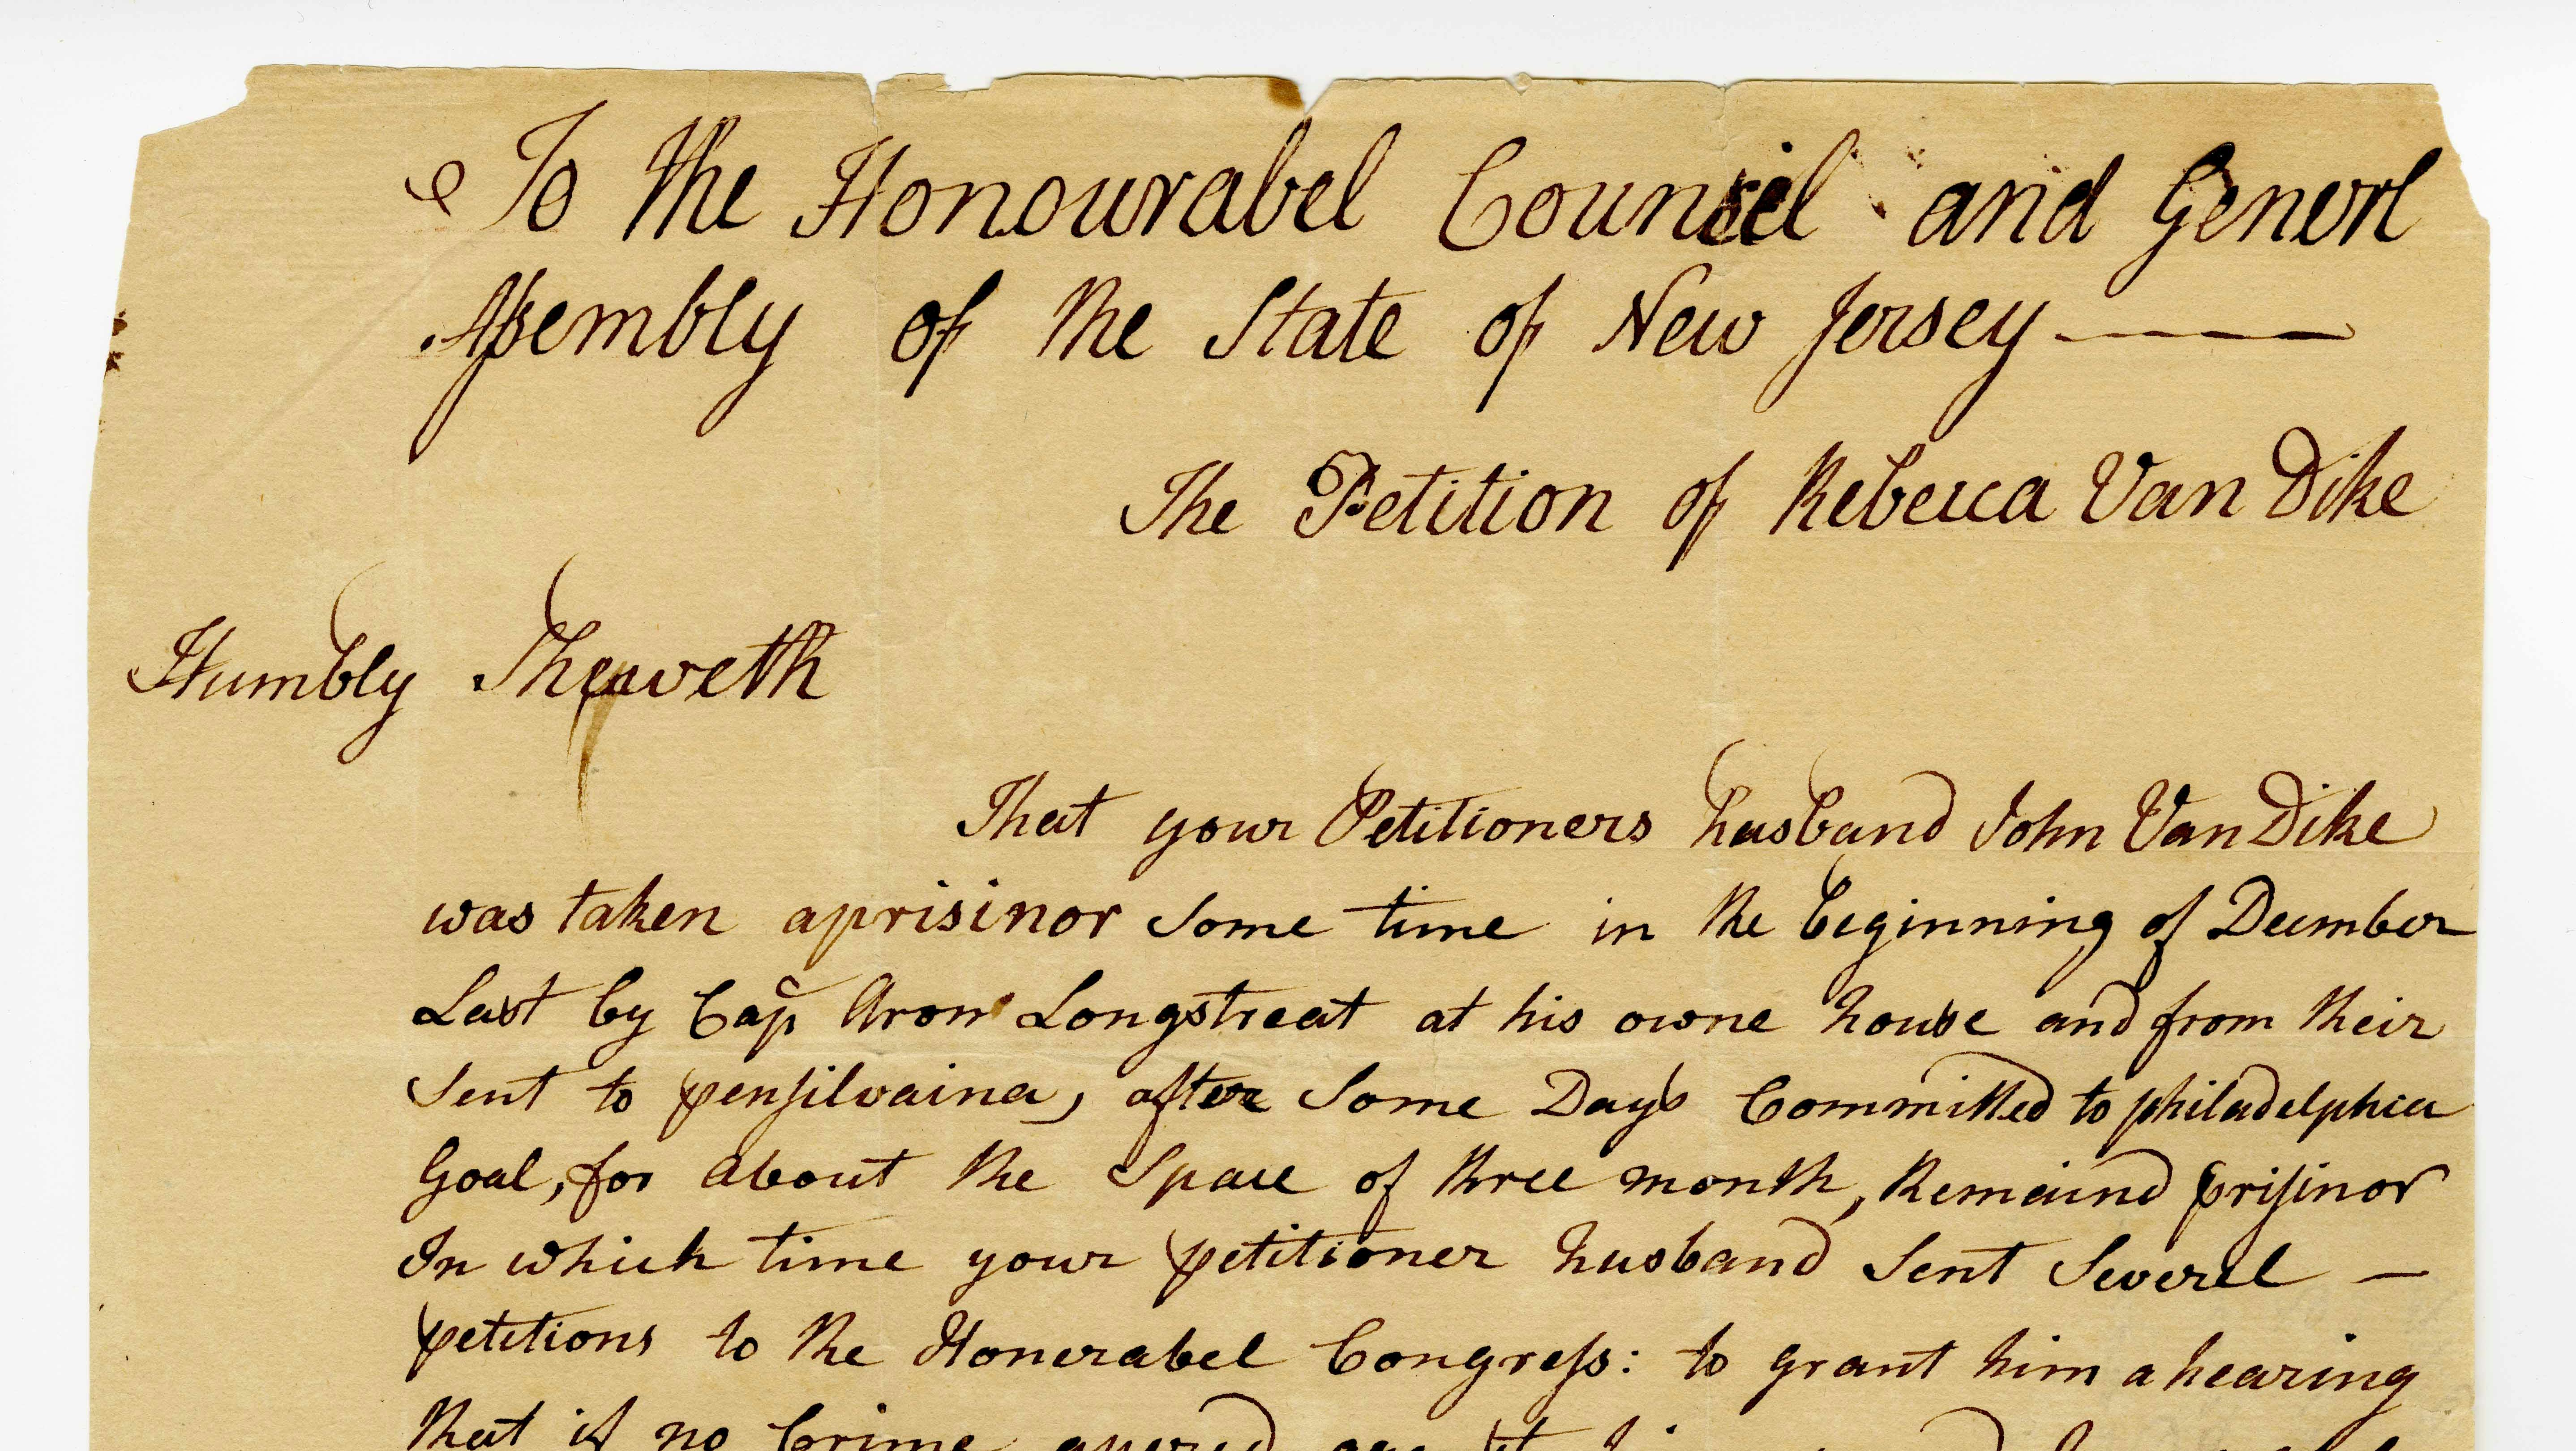 To the Honourabel Counsel and Generl
Assembly of the State of New Jersey
The Petition of Rebecca Van Dike
Humbly Sheweth
That your Petitioners husband John Van Dike
was taken aprisinor Some time in the beginning of December
Last by Cap Aron Longstreat at his owne house and from their
Sent to pensilvaina, after Some Days Committed to philadelphia
Goal, for about the Space of three month, Remaind prisinor
In which time your petitioner husband Sent Severel —
petitions to the Honerabel Congress: to grant him a hearing
that if no Crime apered